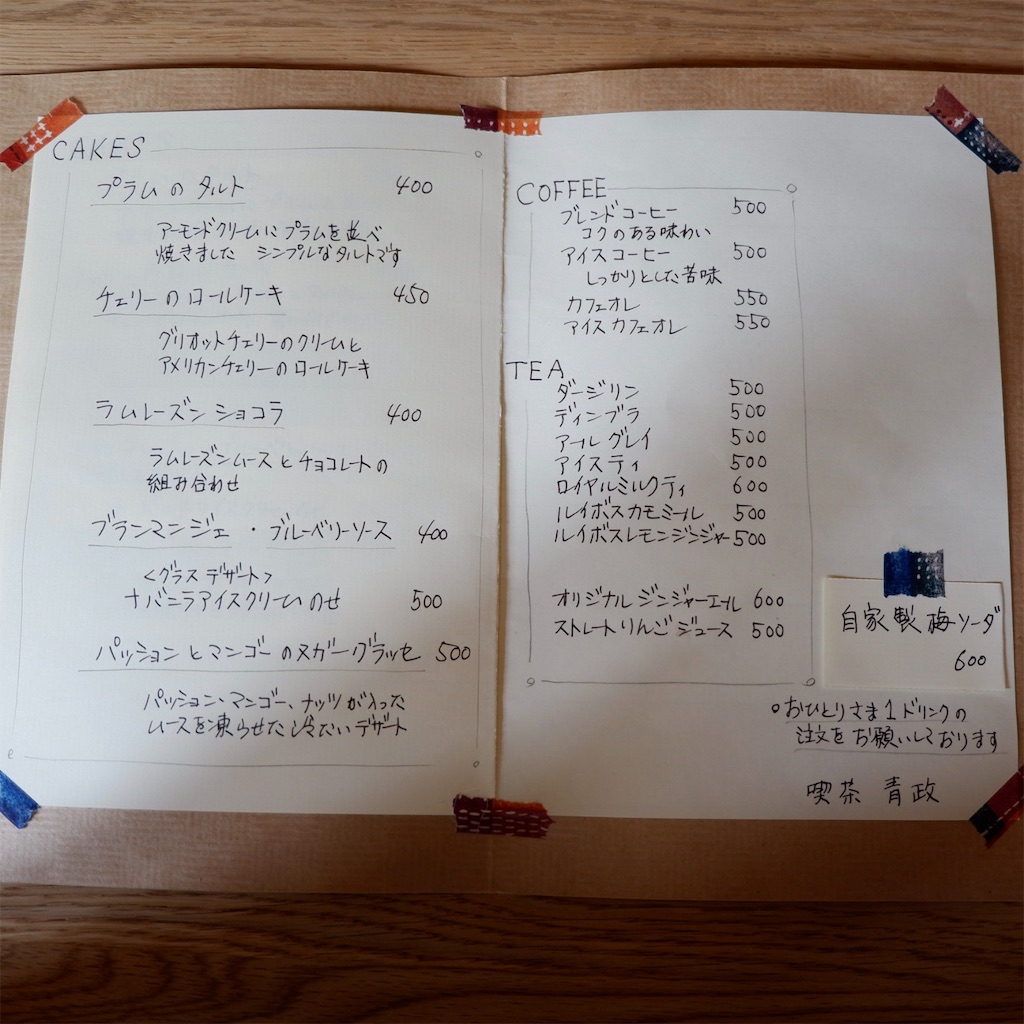 CAKES
プラムのタルト 400
アーモンドクリームにプラムを並べ
焼きました シンプルなタルトです
チェリーのロールケーキ 450
グリオットチェリーのクリームと
アメリカンチェリーのロールケーキ
ラムレーズンショコラ 400
ラムレーズンムースとチョコレートの
組み合わせ
ブランマンジェ・ブルーベリーソース 400
<グラスデザート>
+バニラアイスクリームのせ 500
パッションとマンゴーのヌガーグラッセ 500
パッション、マンゴー、ナッツが入った
ムースを凍らせた冷たいデザート
COFFEE
ブレンドコーヒー 500
コクのある味わい
アイスコーヒー 500
しっかりとした苦味
カフェオレ 550
アイスカフェオレ 550
TEA
ダージリン 500
ディンブラ 500
アールグレイ 500
アイスティ 500
ロイヤルミルクティ 600
ルイボスカモミール 500
ルイボスレモンジンジャー 500
オリジナルジンジャーエール 600
ストレートりんごジュース 500
自家製梅ソーダ
600
○おひとりさま1ドリンクの
注文をお願いしております
喫茶 青政